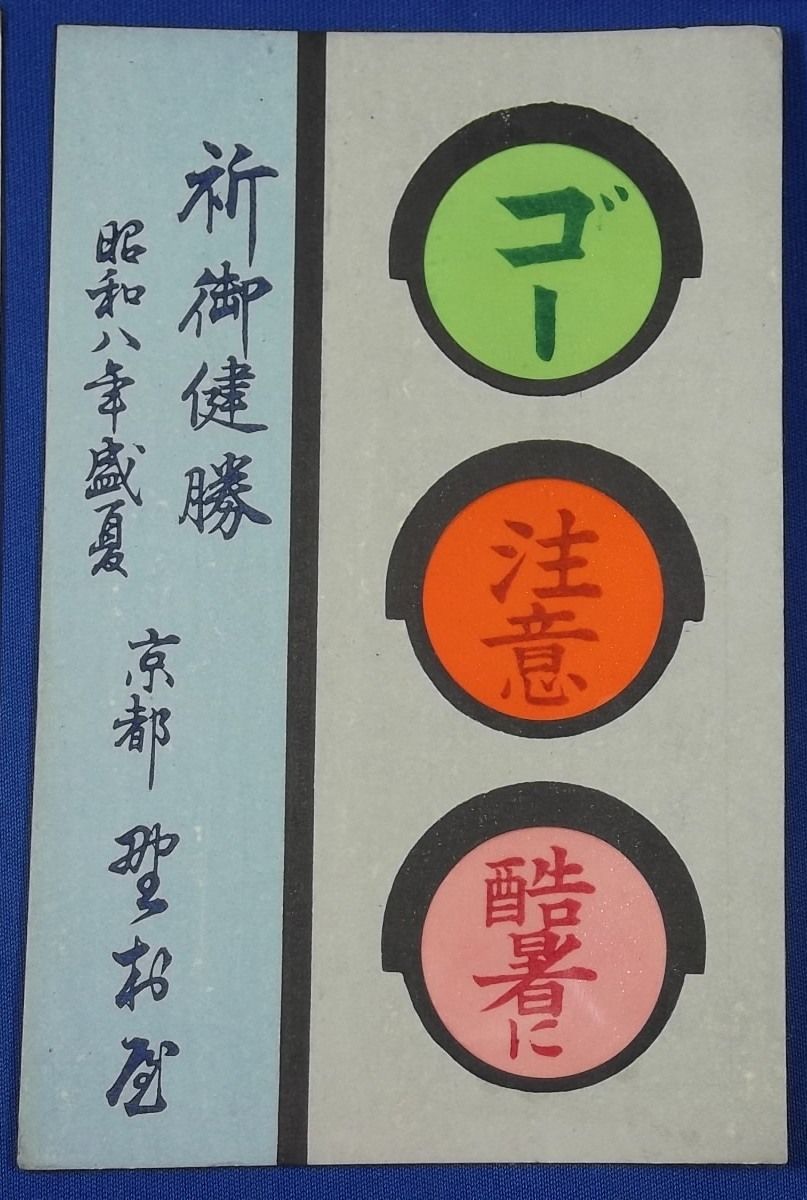 ゴー
注意
酷暑に
祈御健勝
昭和八年盛夏
京都 野村屋